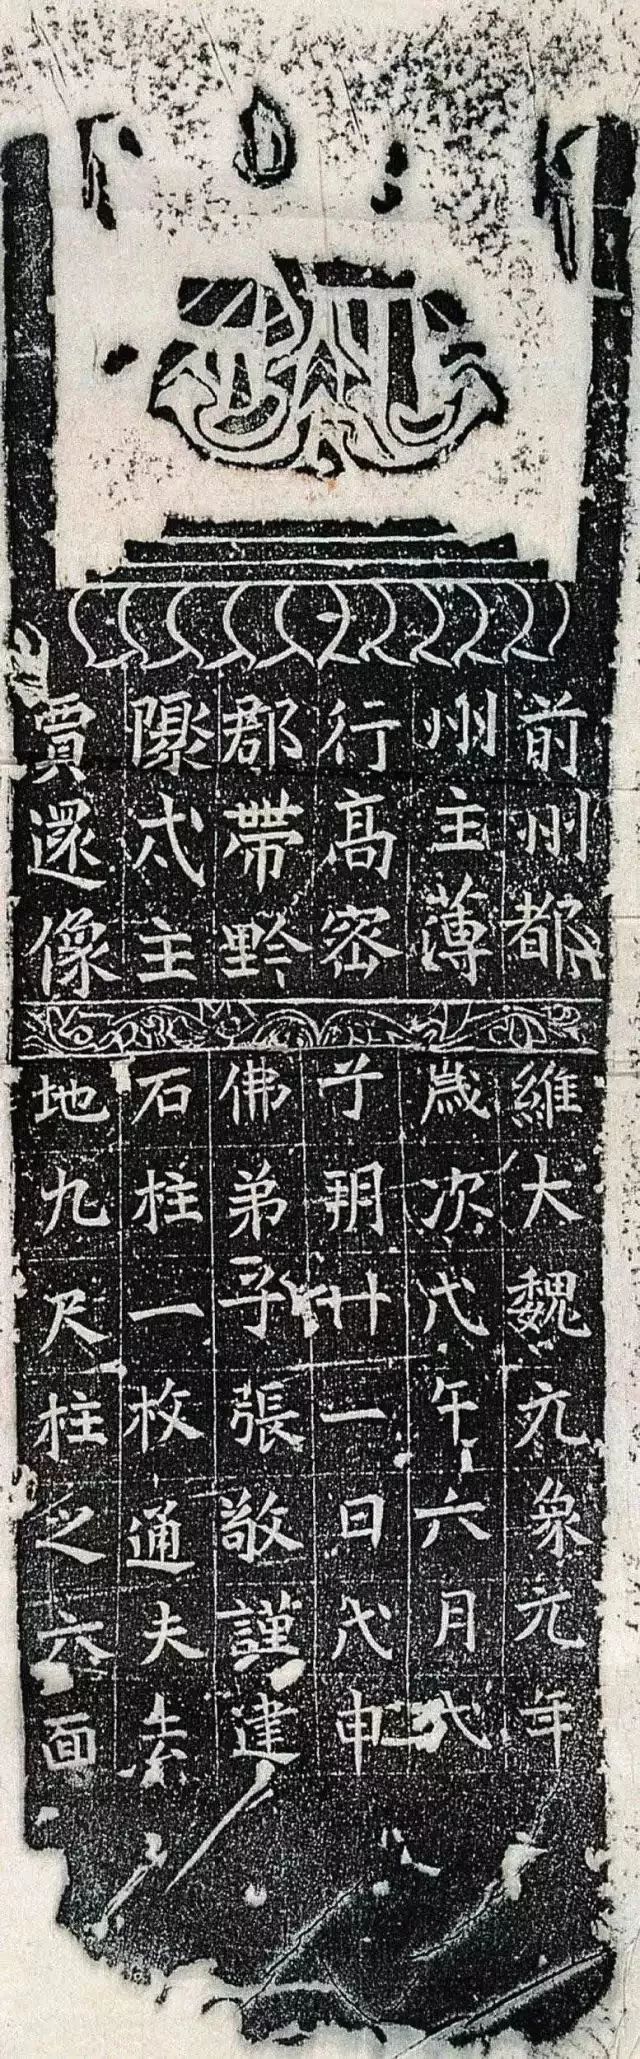 前州都
州主薄
行高密
郡帶黔
陬弍主
賈還像
維大魏元象元年
歲次代午六月代
子朔廿一日代申
佛弟子張敬謹建
石柱一枚通夫素
地九尺柱之六面